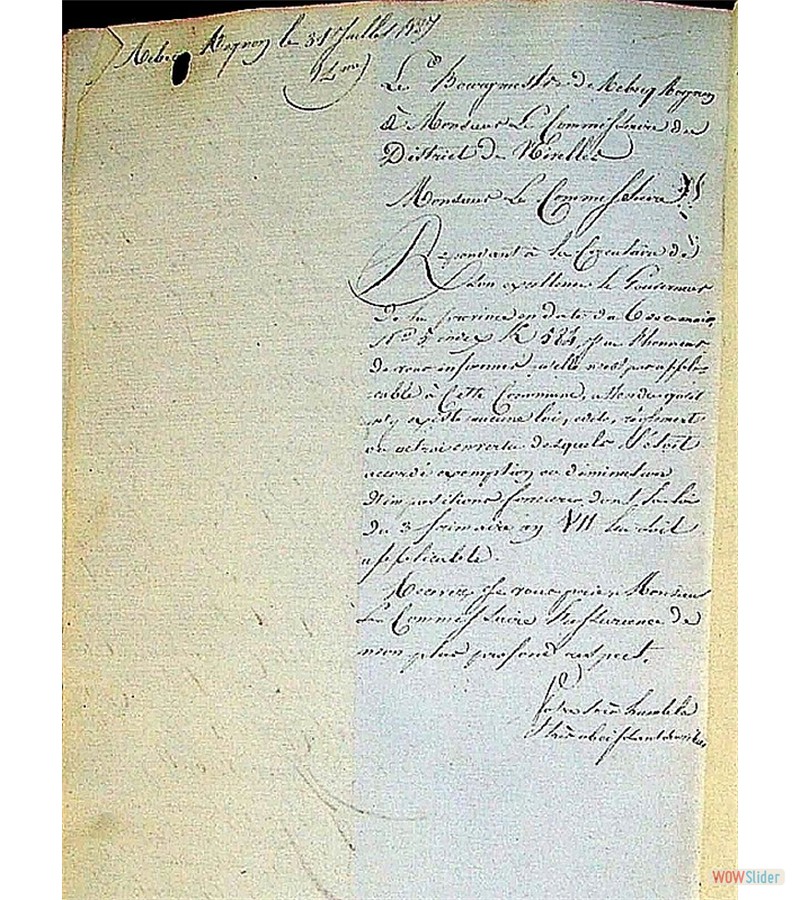 Rebecq Rognon le 31 Juillet 1837
Le Bourgmestre de Rebecq Rognon
à Monsieur Le Commissaire du
District de Nivelles
Monsieur Le Commissaire
Répondant à la Circulaire de
Son excellence le Gouverneur
de la province en date du 6 de ce mois,
K 584 j'ai l'honneur
de vous informer qu'elle n'est pas appli-
cable à Cette Commune, attendu qu'il
n'y existe aucune loi, edits, règlements
ou octroi en vertu desquels il était
accordé exemption ou diminution
d'impositions foncieres dont la loi
du 3 frimaire an VII lui soit
applicable.
Recevez je vous prie, Monsieur
Le Commissaire l'assurance de
mon plus profond respect.
Votre très humble &
très obeissant serviteur
WOWSlider